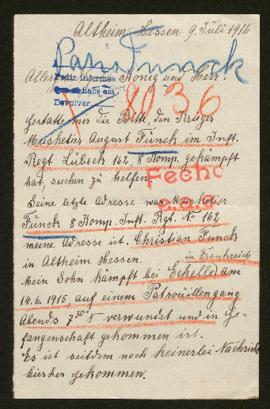 Altheim Hessen 9 Juli 1916
Patio Funck
König und Herr!
Pedir informes
Devolver
8036
Gestatte mir die Bitte, den Krieger
Musketier August Funck im Inft.
Regt Lübeck 162 8 Komp. gekämpft
hat, suchen zu helfen.
Fecho
Seine letzte Adresse war Musketier
Funck 8 Komp. Inft. Rgt. No 162
meine Adresse ist. Christian Funck
in Altheim Hessen. in Frankreich
Mein Sohn kämpft bei Echelle am
14.6.1915, auf einem Patrouillengang
Abends verwundet und in Ge-
fangenschaft gekommen ist.
Es ist seitdem noch keinerlei Nachricht
hierher gekommen.